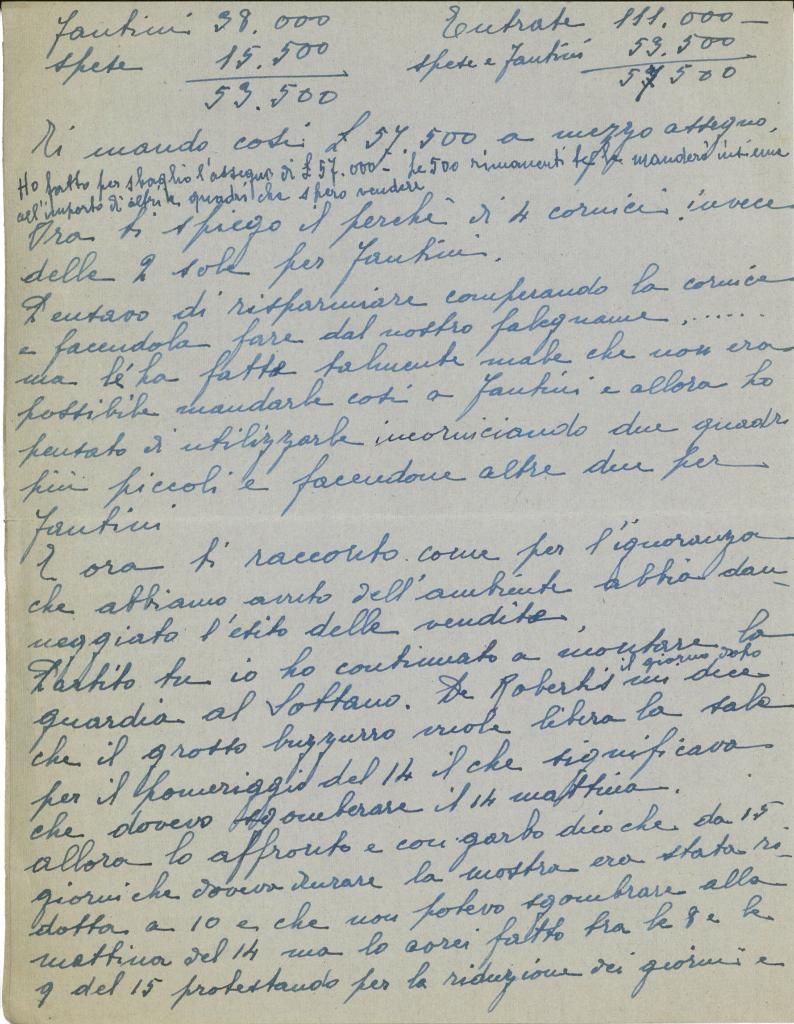 Fantini 38.000
spese 15.500
53.500
Entrate 111.000 —
spese e Fantini 53.500
57 500
Ti mando così £ 57.500 a mezzo assegno.
Ho fatto per sbaglio l'assegno di £ 57.000 — le 500 rimanenti te le manderò insieme
all'importo di altri quadri che spero vendere
Ora ti spiego il perchè di 4 cornici invece
delle 2 sole per Fantini.
Pensavo di risparmiare comperando la cornice
e facendola fare dal nostro falegname, ......
ma le ha fatte talmente male che non era
possibile mandarle così a Fantini e allora ho
pensato di utilizzarle incorniciando due quadri
più piccoli e facendone altre due per
Fantini
E ora ti racconto come per l'ignoranza
che abbiamo avuto dell'ambiente abbia dan-
neggiato l'esito delle vendite.
Partito tu io ho continuato a montare la
guardia al Sottano. De Robertis il giorno dopo mi dice
che il grosso buzzurro vuole libera la sala
per il pomeriggio del 14 il che significava
che dovevo sgomberare il 14 mattina.
allora lo affronto e con garbo dico che da 15
giorni che doveva durare la mostra era stata ri-
dotta a 10 e che non potevo sgombrare alla
mattina del 14 ma lo avrei fatto tra le 8 e le
9 del 15 protestando per la riduzione dei giorni e